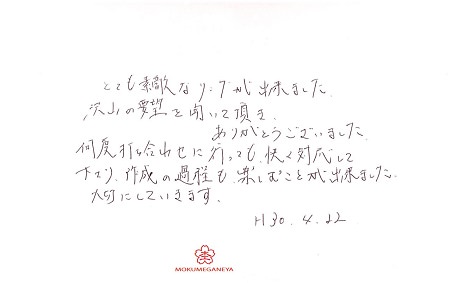 とても素敵なリングが出来ました.
沢山の要望を聞いて頂き
ありがとうございました.
何度打ち合わせに行っても、快く対応して
下さり、作成の過程も、楽しむことが出来ました.
大切にしていきます.
H30.4.22
MOKUMEGANEYA